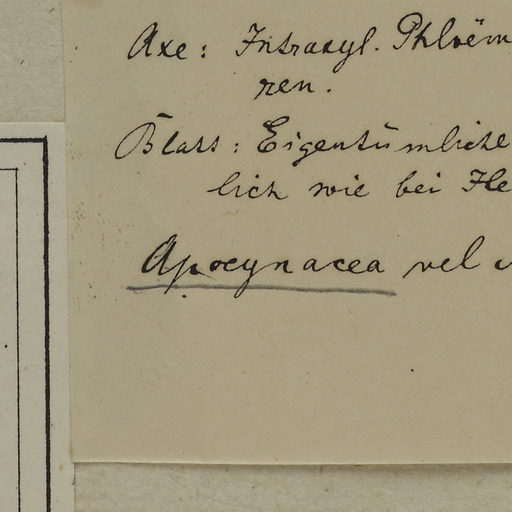 Axe: Intraxyl. Phloëm
ren.
Blatt: Eigentümliche
lich wie bei He
Apocynacea vel